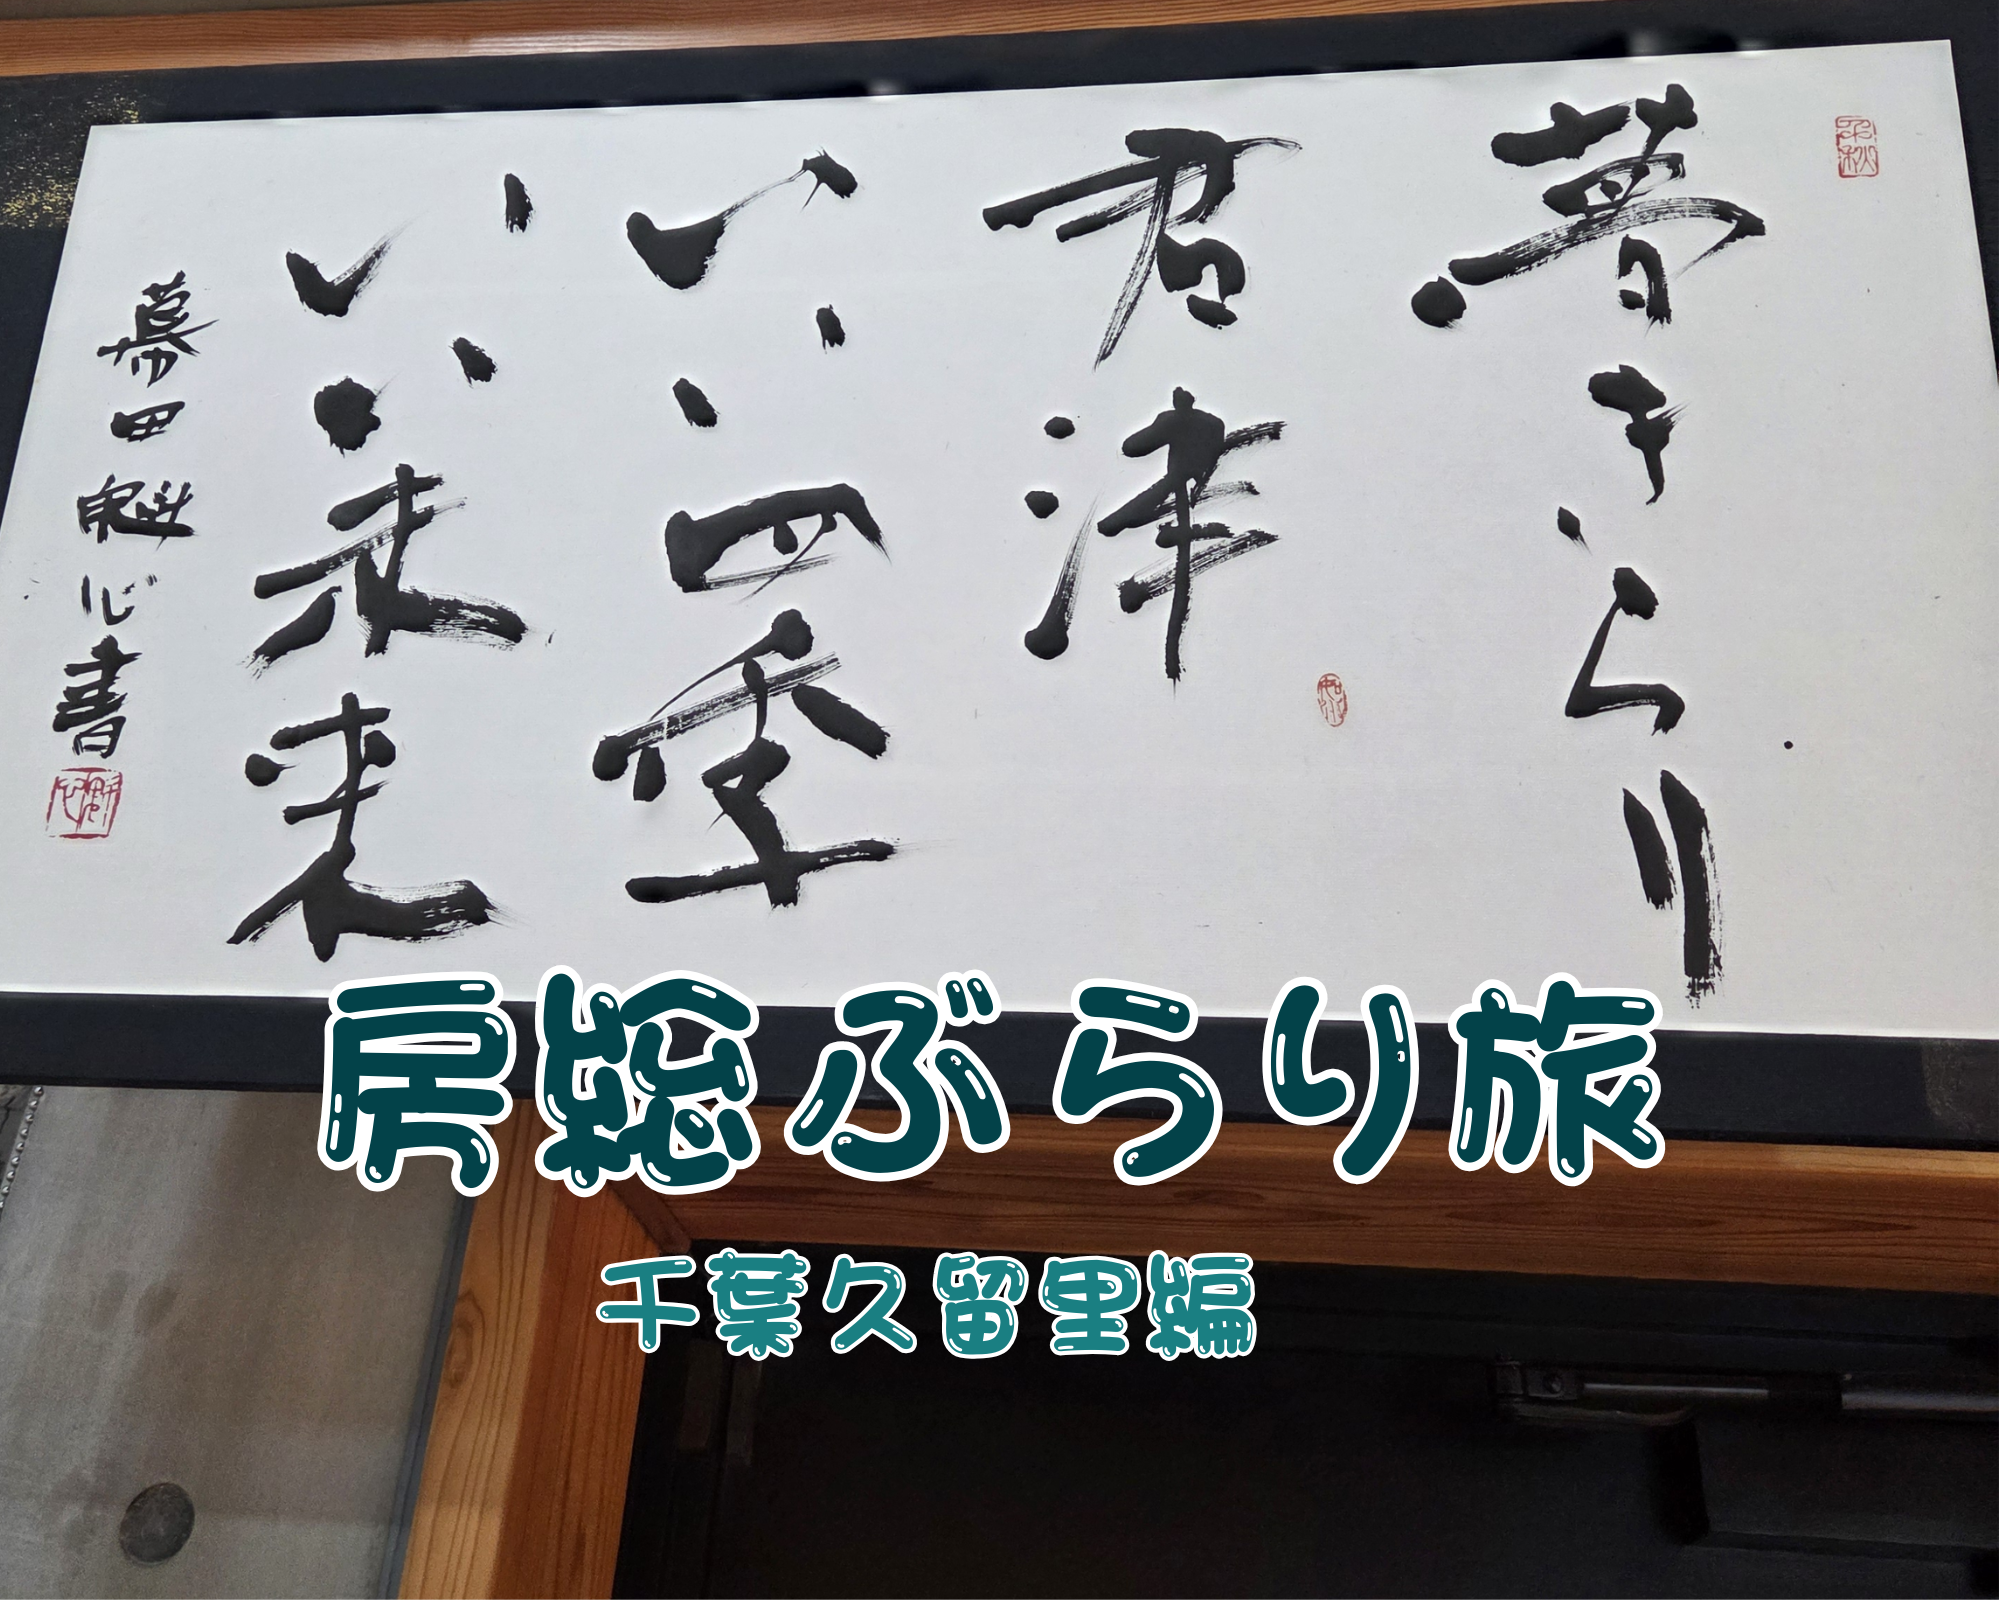 夢きらり
君津
いい四季
いい未来
幕田魁心書
房総ぶらり旅
千葉久留里編